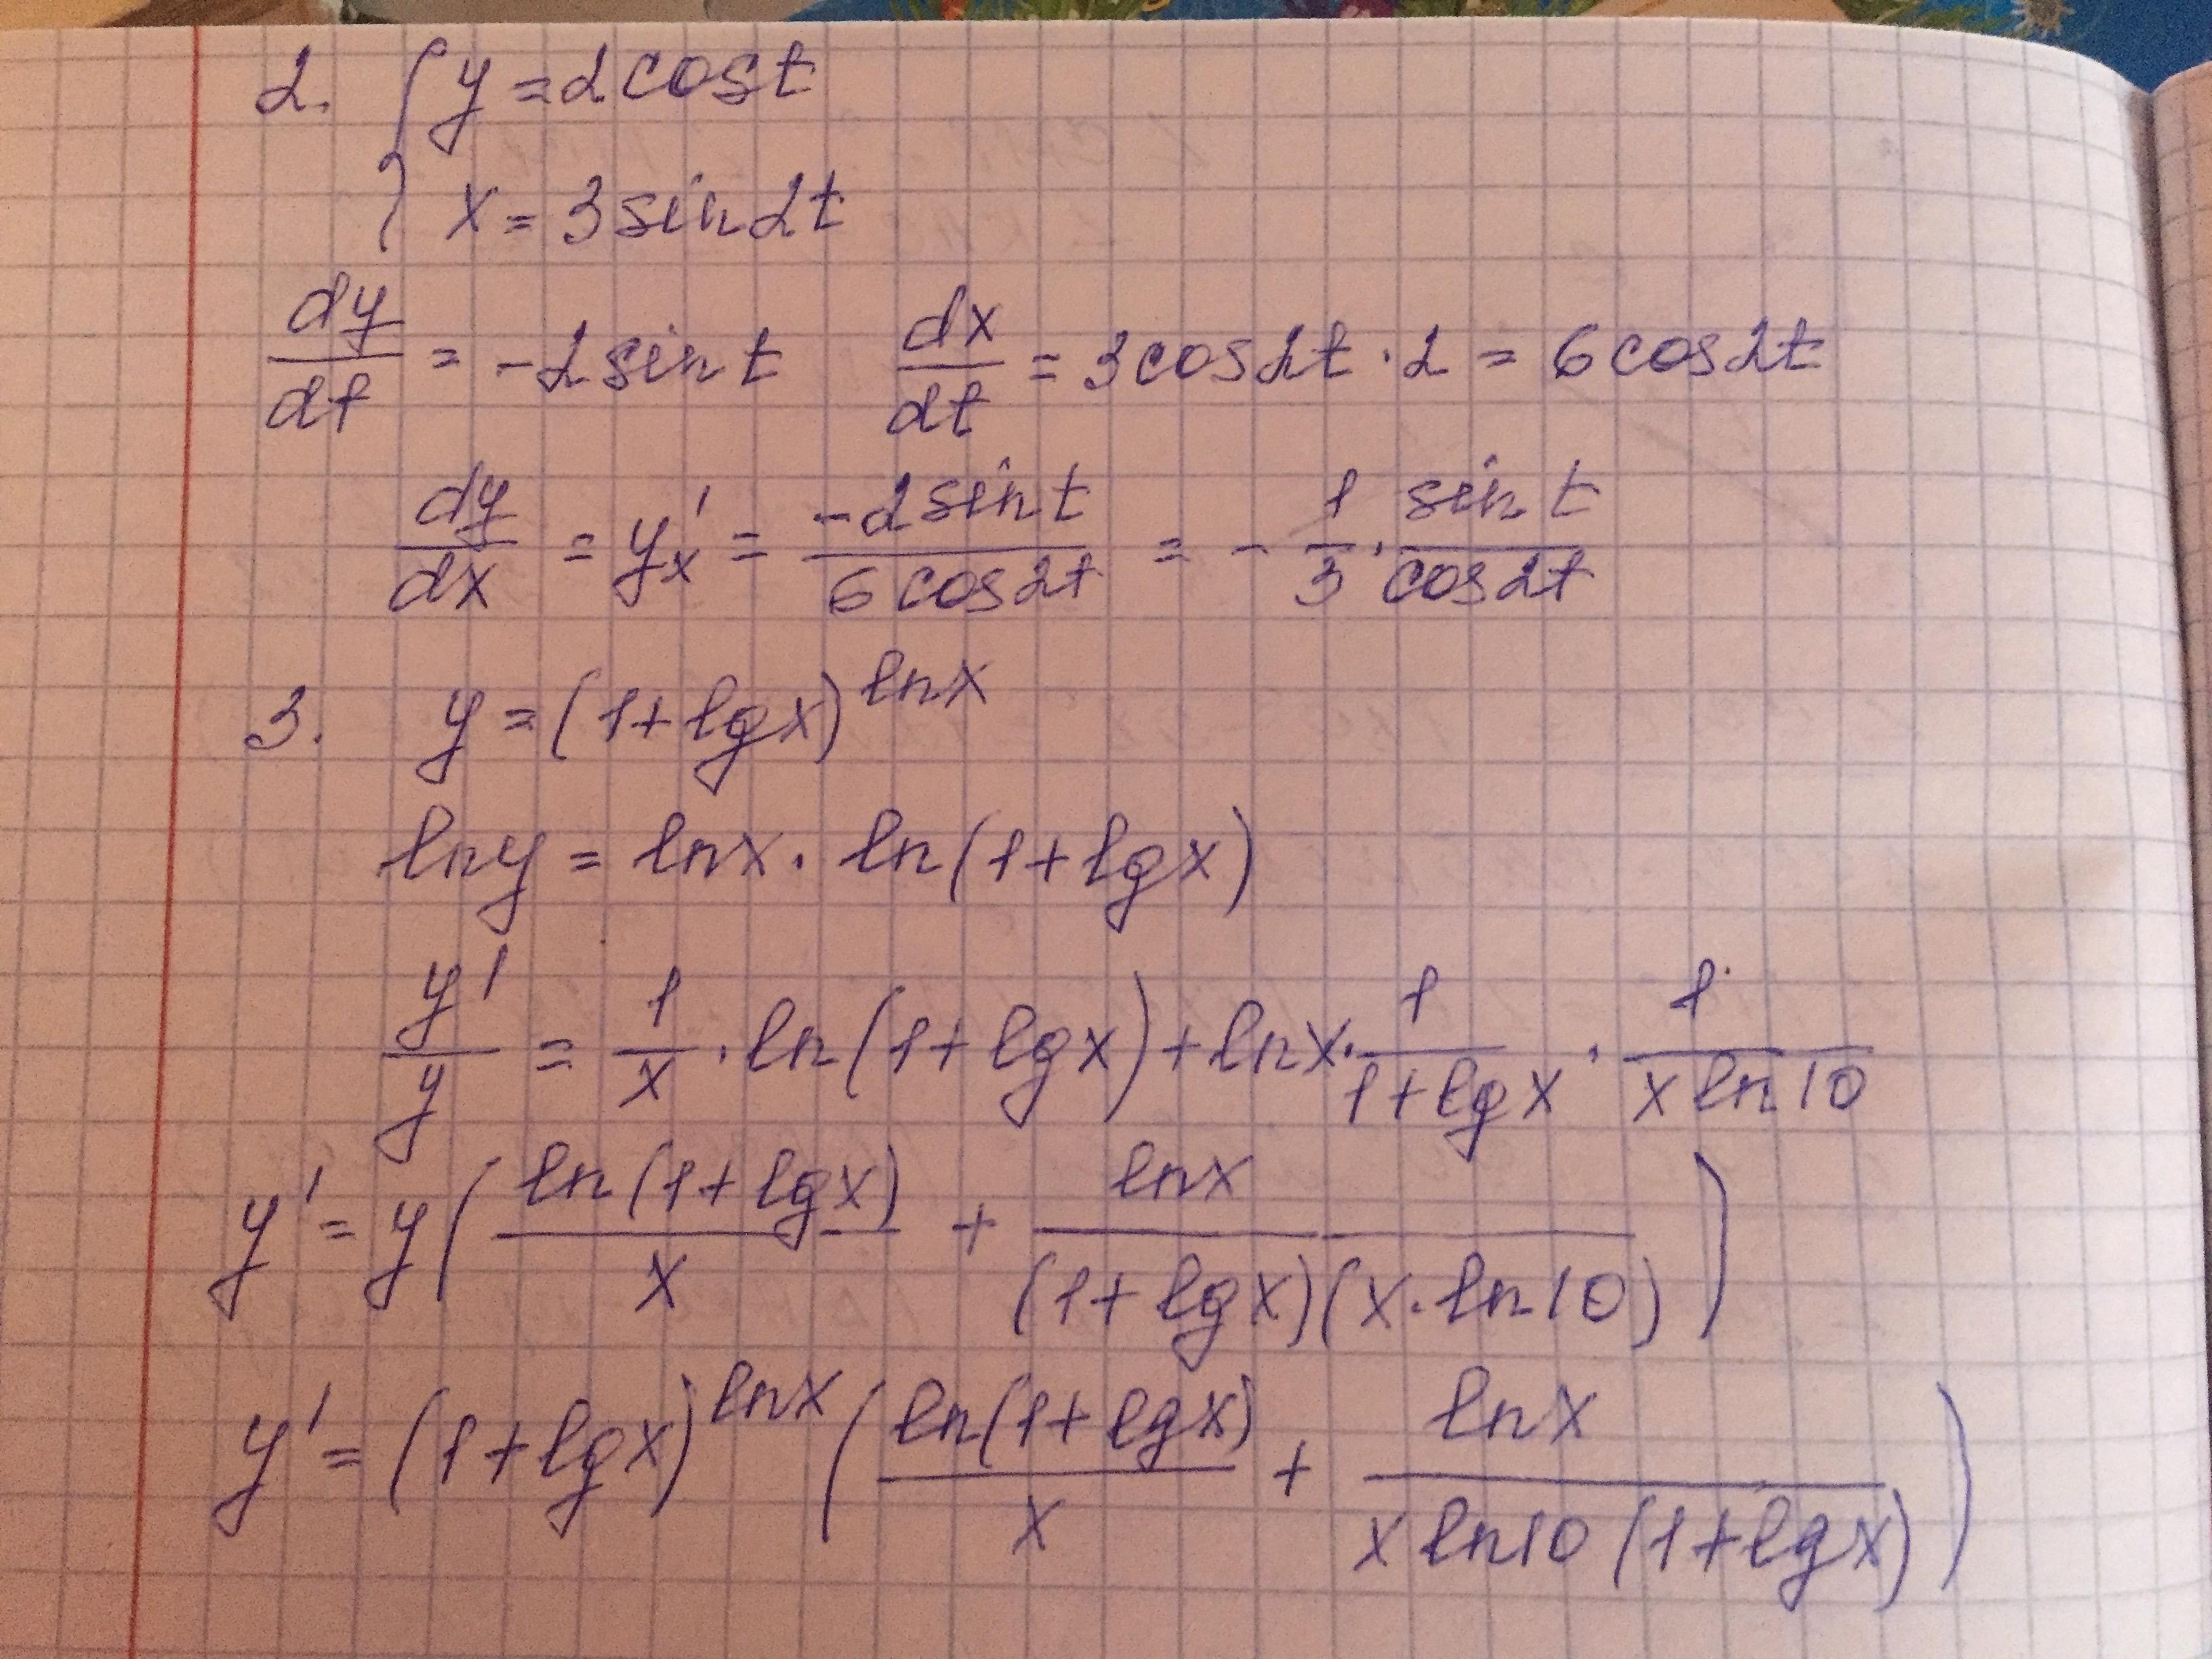 2. { y = 2cost
x = 3sin2t
dy/dt = -2sint dx/dt = 3cos2t · 2 = 6cos2t
dy/dx = y'x = -2sint/6cos2t = - 1/3 · sint/cos2t
3. y = (1+lgx)^lnx
lny = lnx · ln(1+lgx)
y'/y = 1/x · ln(1+lgx) + lnx · 1/1+lgx · 1/xln10
y' = y( ln(1+lgx)/x + lnx/(1+lgx)(x·ln10) )
y' = (1+lgx)^lnx ( ln(1+lgx)/x + lnx/xln10(1+lgx) )